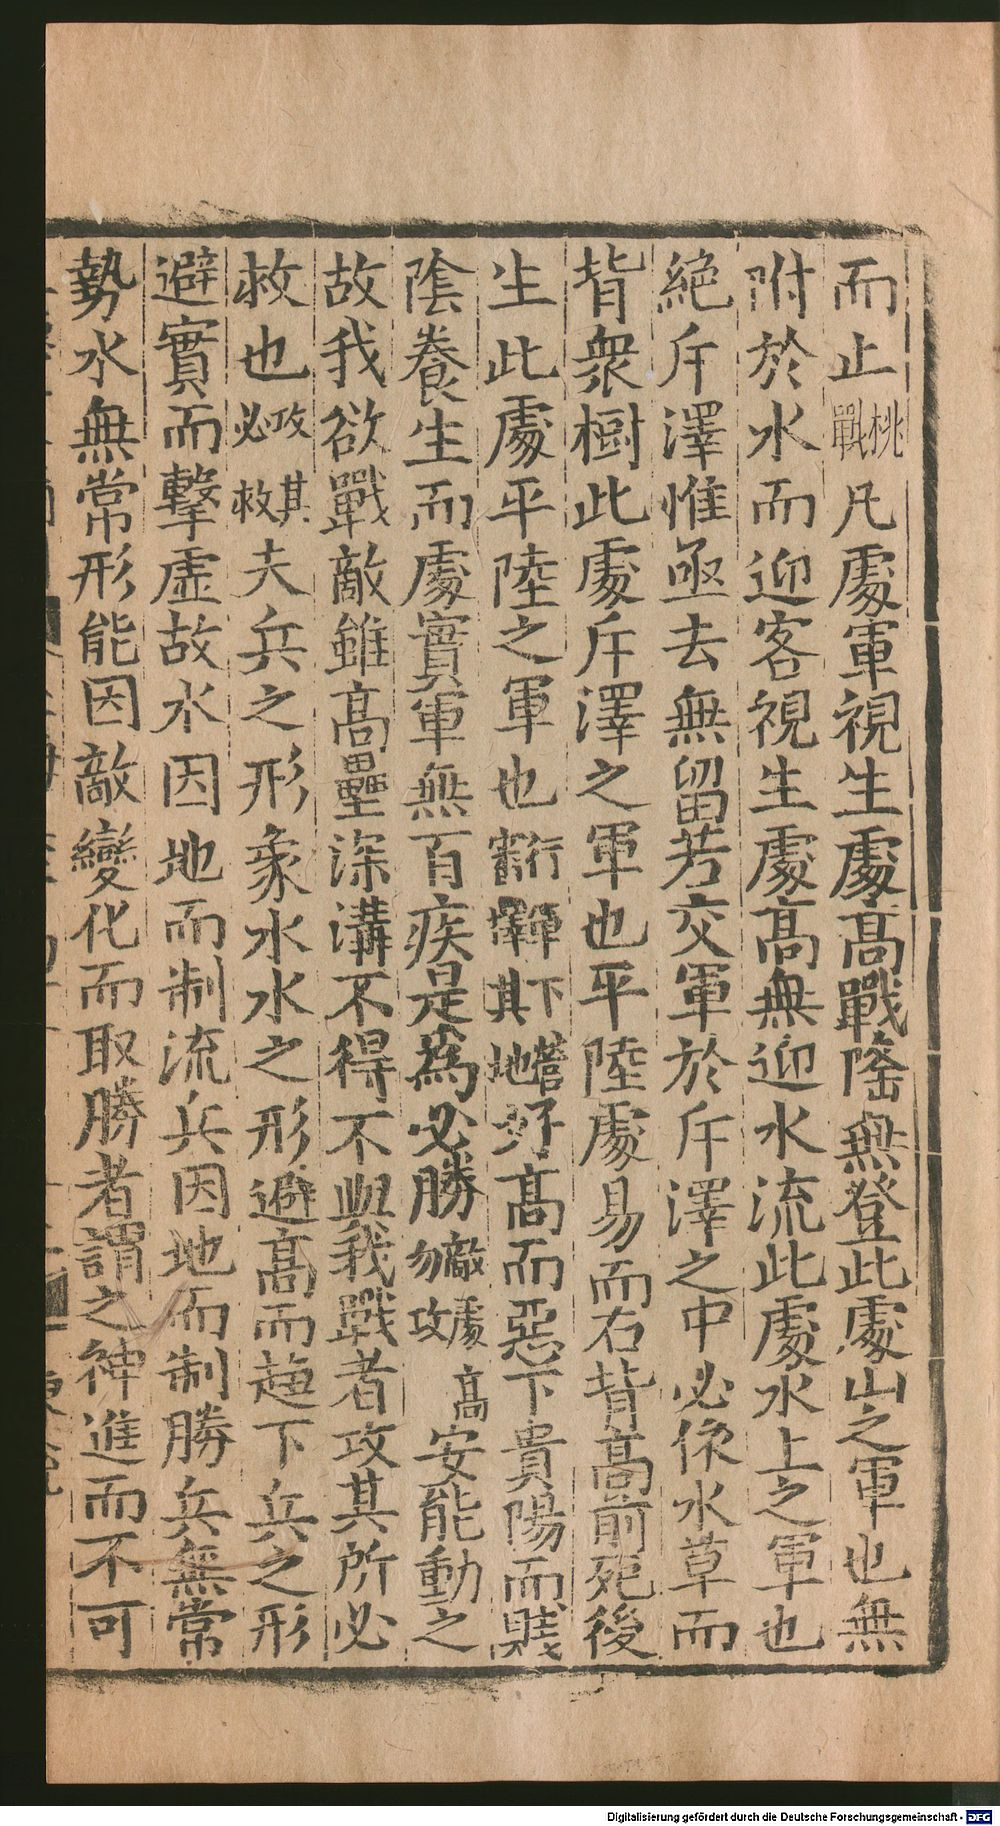 而止挑戰凡處軍視生處高戰隆無登此處山之軍也無
附於水而迎客視生處高無迎水流此處水上之軍也
絕斥澤惟亟去無留若交軍於斥澤之中必依水草而
背衆樹此處斥澤之軍也平陸處易而右背高前死後
生此處平陸之軍也行軍下營擇其地好高而惡下貴陽而賤
陰養生而處實軍無百疾是爲必勝敵處高勿攻安能動之
故我欲戰敵雖高壘深溝不得不與我戰者攻其所必
救也攻其必救夫兵之形象水水之形避高而趍下兵之形
避實而擊虛故水因地而制流兵因地而制勝兵無常
勢水無常形能因敵變化而取勝者謂之神進而不可
Digitalisierung gefördert durch die Deutsche Forschungsgemeinschaft - DFG